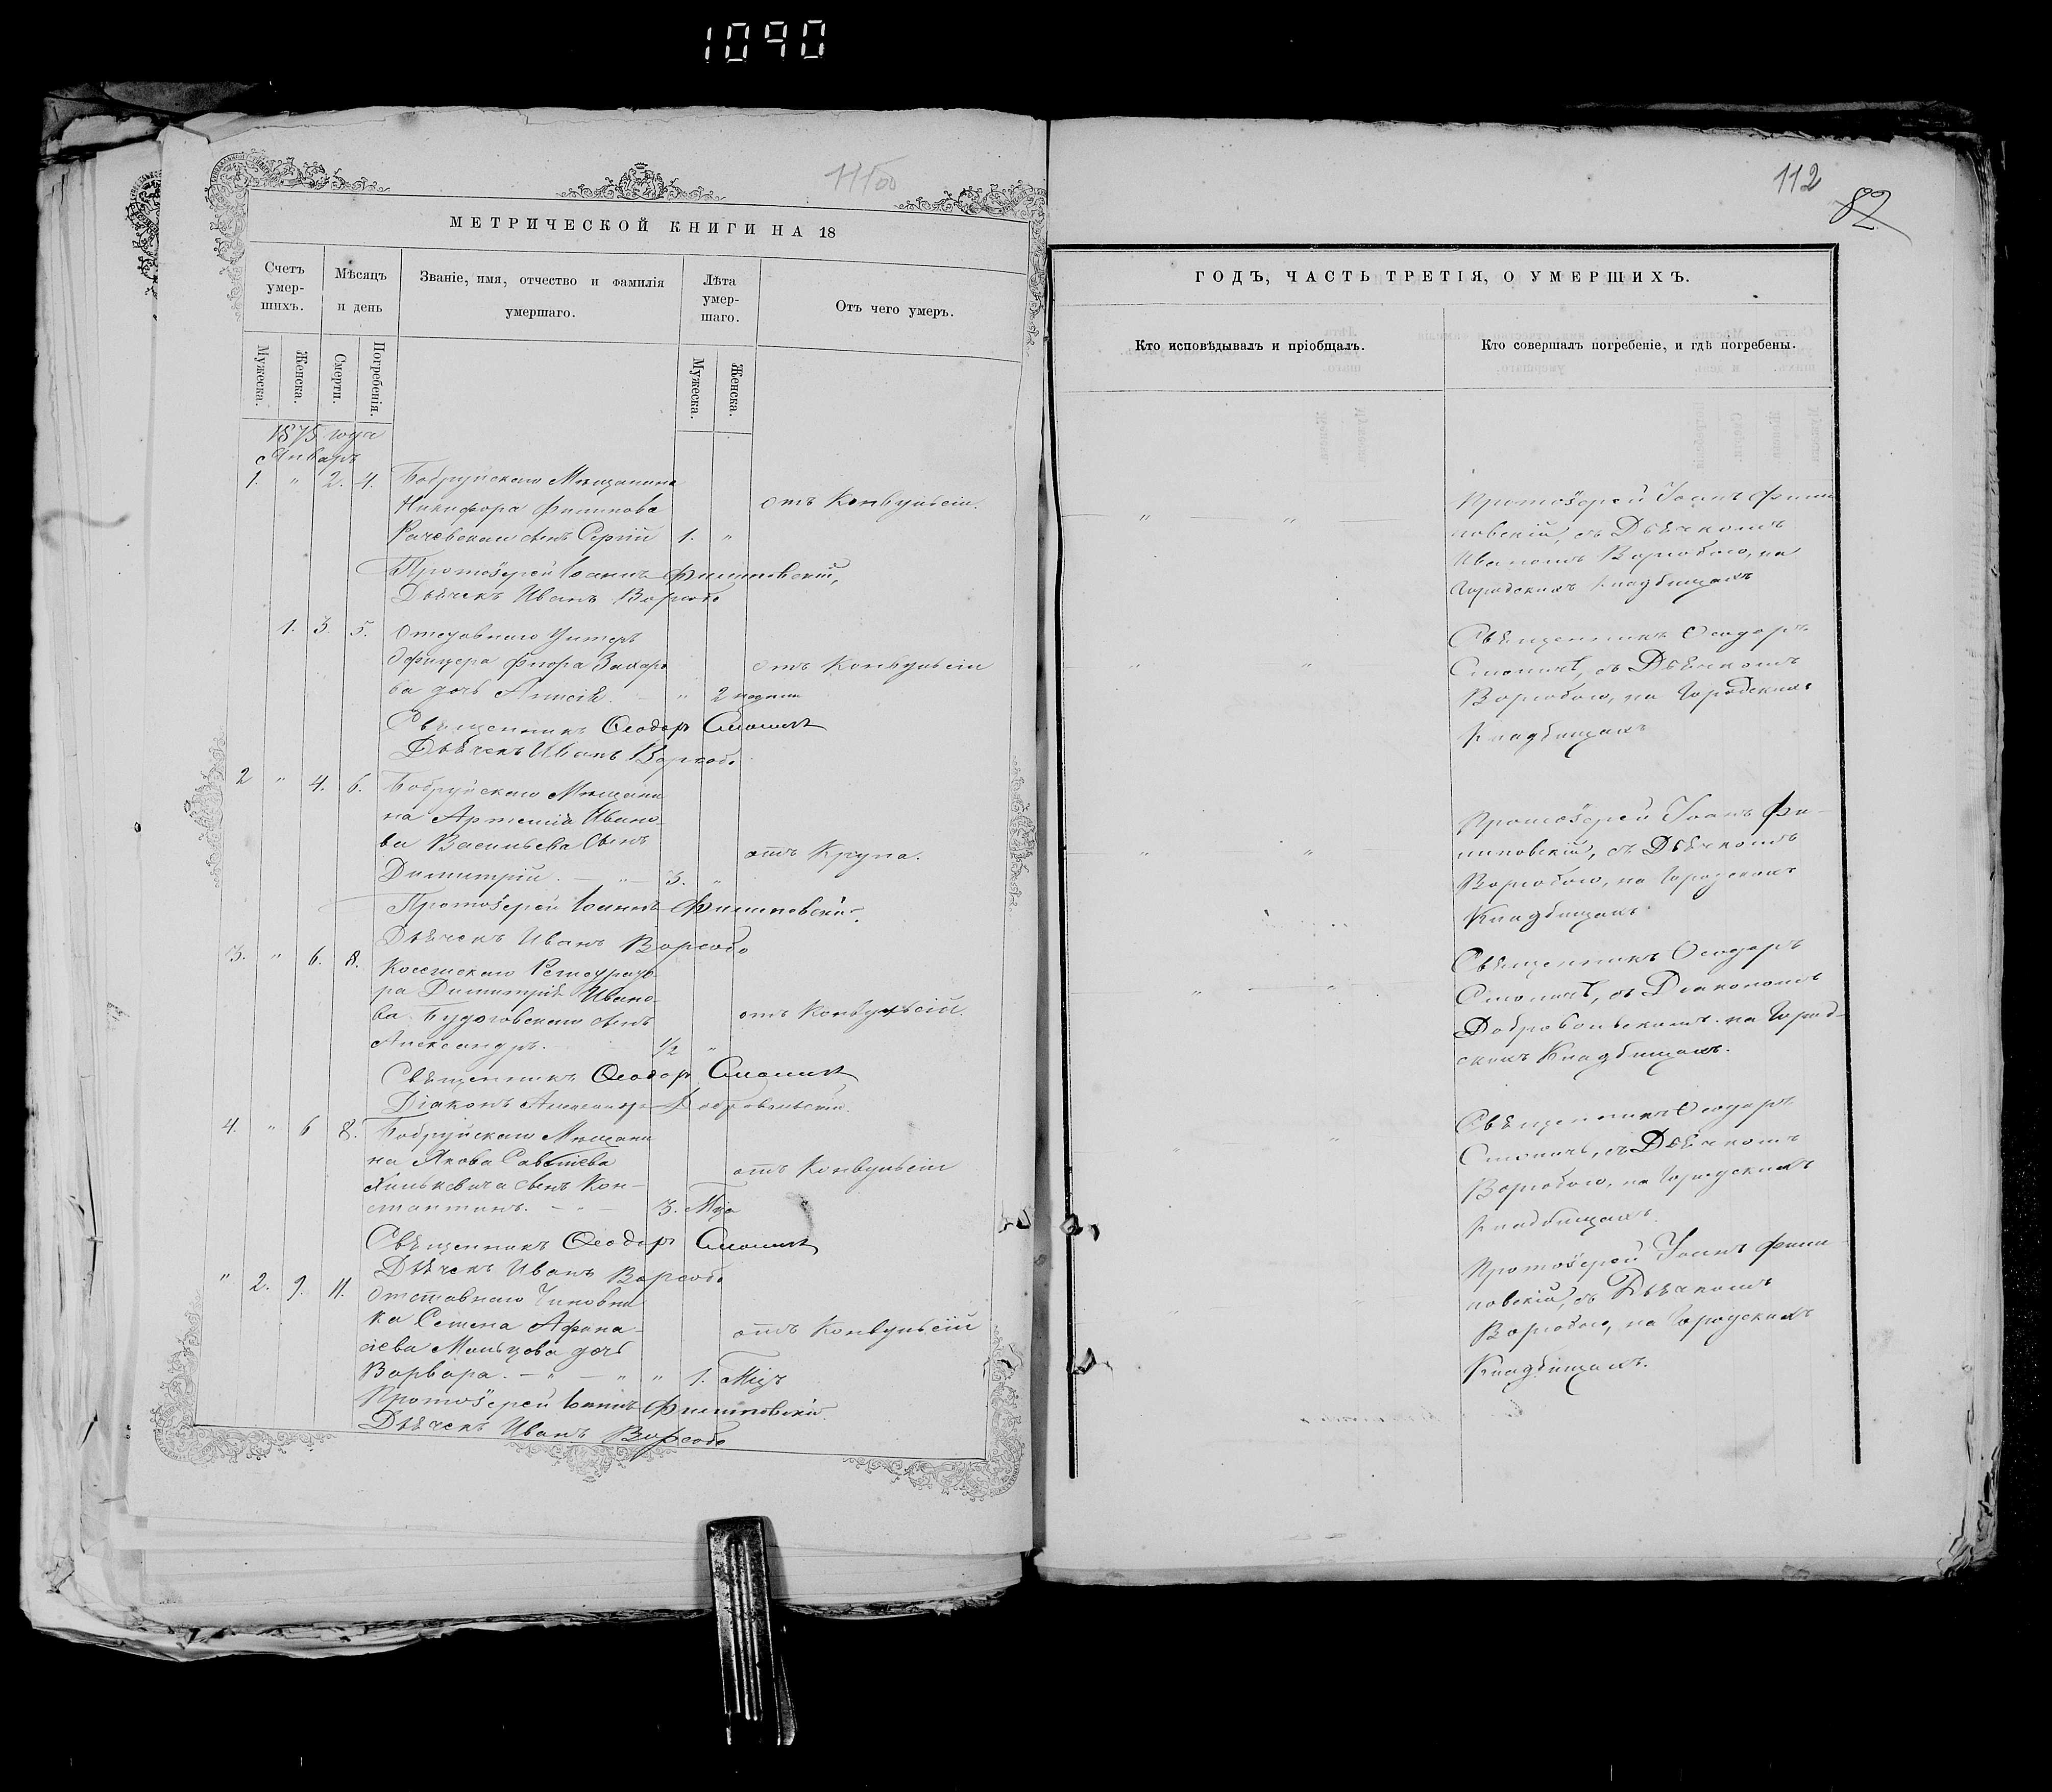 1090
1100
МЕТРИЧЕСКОЙ КНИГИ НА 18
Счетъ умер-шихъ.
Мѣсяцъ и день
Званіе, имя, отчество и фамилія умершаго.
Лѣта умер-шаго.
Отъ чего умеръ.
Мужеска.
Женска.
Смерти.
Погребенія.
Мужеска.
Женска.
1875 года
Январь
1. " 2. 4. Бобруйскаго Мѣщанина
Никифора Филипова
отъ Конвульсіи.
Рачевскаго сынъ Сергій 1. "
Протоіерей Іоаннъ Филиповскій,
Дьячекъ Иванъ Воробо
1. 3. 5. Отставнаго Унтеръ
Офицера Флора Захаро
отъ Конвульсіи
ва дочь Анисія " 2 недели
Священникъ Ѳеодоръ Смоличъ
Дьячекъ Иванъ
2 " 4. 6. Бобруйскаго Мѣщани
на Артемія Ивано-
ва Васильева сынъ
отъ Крупа.
Димитрій. — " — 3. "
Протоіерей Іоаннъ Филиповскій.
Дьячекъ Иванъ
3. " 6. 8. Колежскаго Регистрато-
ра Димитрія Ивано-
отъ Конвульсіи.
ва сынъ
Александръ. 1/2 "
Священникъ Ѳеодоръ Смоличъ
Діаконъ Александръ Добровольскій.
4. " 6 8. Бобруйскаго Мѣщани
на Якова Савѣтіева
отъ Конвульсіи
Хильквича сынъ Кон-
стантинъ. — " — 3. Мца
Священникъ Ѳеодоръ Смоличъ
Дьячекъ Иванъ
" 2. 9. 11. Отставнаго Чиновни
ка Семена Афана-
отъ Конвульсіи
сіева Мальцова дочь
Варвара. — " — " " 1. Мцъ
Протоіерей Іоаннъ Филиповскій.
Дьячекъ Иванъ
112
82
ГОДЪ, ЧАСТЬ ТРЕТІЯ, О УМЕРШИХЪ.
Кто исповѣдывалъ и пріобщалъ.
Кто совершалъ погребеніе, и гдѣ погребены.
Протоіерей Іоанъ Фили
" "
повскій, съ Дьячкомъ
Иваномъ на
Городскихъ Кладбищахъ
Священникъ Ѳеодоръ
" "
Смоличъ, съ Дьячкомъ
на Городскихъ
Кладбищахъ
Протоіерей Іоанъ Фи-
" "
липовскій, съ Дьячкомъ
на Городскихъ
Кладбищахъ
Священникъ Ѳеодоръ
" "
Смоличъ, съ Діакономъ
Добровольскимъ. на Город-
скихъ Кладбищахъ.
Священникъ Ѳеодоръ
"
Смоличъ, съ Дьячкомъ
на Городскихъ
Кладбищахъ.
Протоіерей Іоанъ Фили
повскій, съ Дьячкомъ
на Городскихъ
Кладбищахъ.